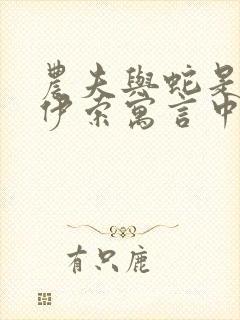 農夫與蛇是
伊索寓言中
有只鹿